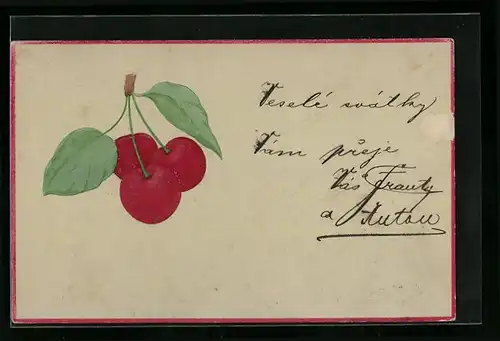 Veselé svátky
Vám přeje
Váš Franty
a Antou